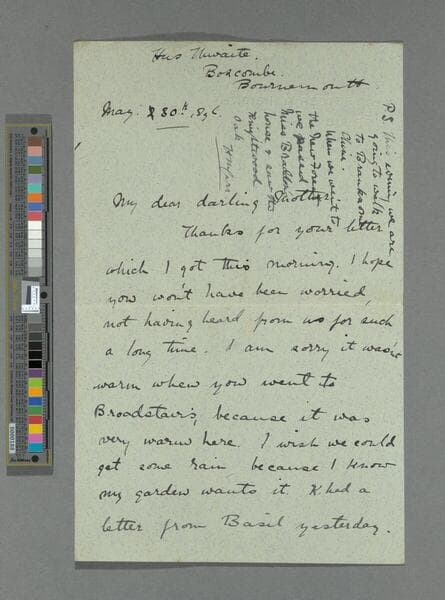 Hus Thwaite.
Boscombe.
Bournemouth
May. 30th, 1896.
My dear darling Mother
Thanks for your letter
which I got this morning. I hope
you won't have been worried,
not having heard from us for such
a long time. I am sorry it wasn't
warm when you went to
Broadstairs, because it was
very warm here. I wish we could
get some rain, because I know
my garden wants it. K had a
letter from Basil yesterday.
P.S. This evening we are
going to walk
to Branksome
Chine.
When we went to
the New Forest
we passed
Miss Braddon's
house & saw the
Knightwood
Oak